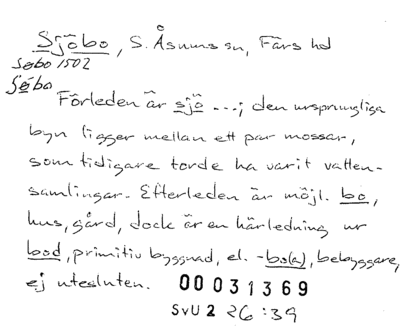 Sjöbo, S. Åsums sn, Färs hd
Søbo 1502
Søbo
Förleden är sjö ...; den ursprungliga
byn ligger mellan ett par mossar,
som tidigare torde ha varit vatten-
samlingar. Efterleden är möjl. bo,
hus, gård, dock är en härledning ur
bod, primitiv byggnad, el. -bo(a), bebyggare,
ej utesluten.
00031369
SvU 2 26:39